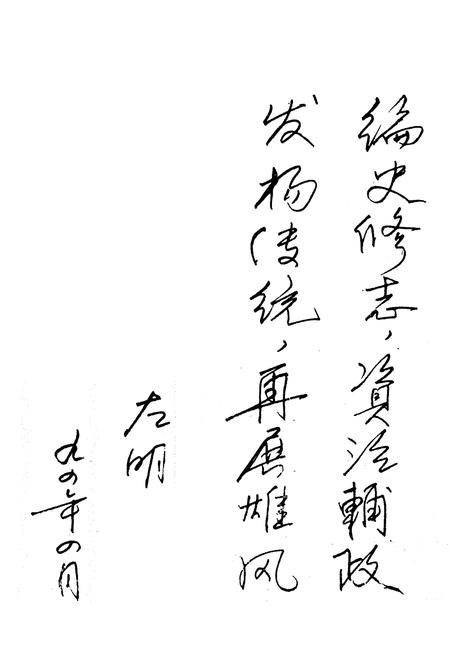 编史修志，資治輔政
发杨传统，再展雄风
左明
九四年四月